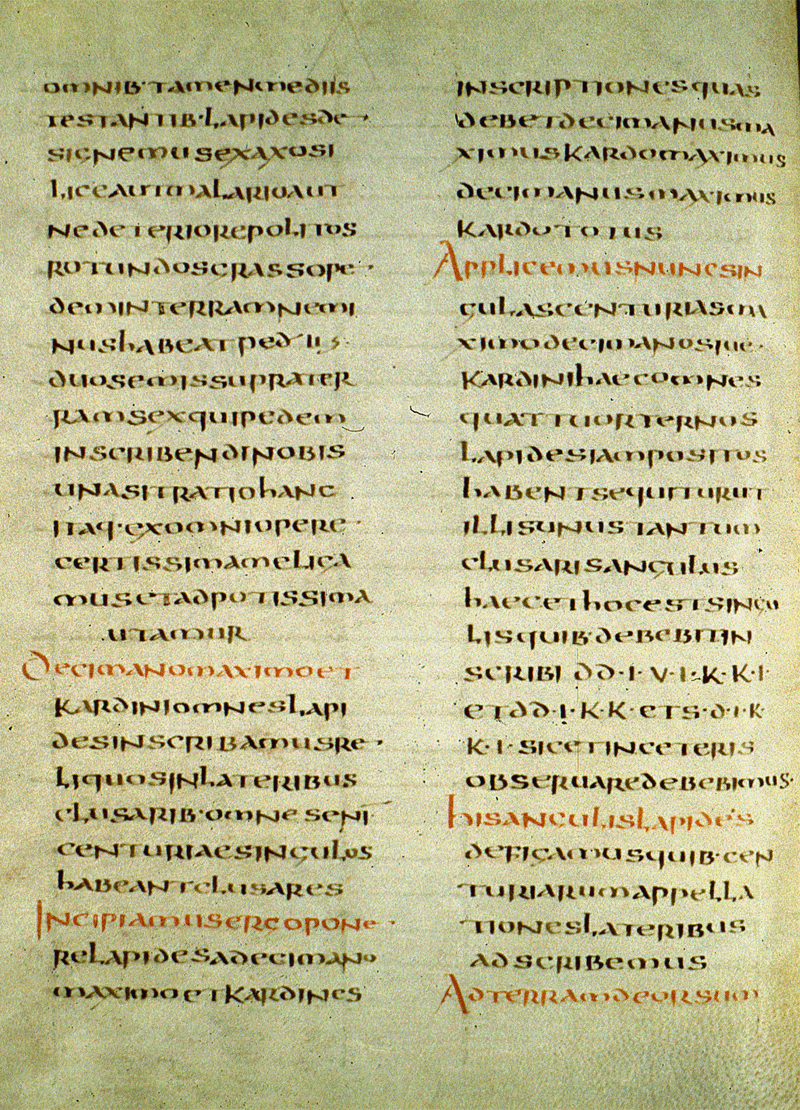 OMNIB·TAMENMEDIIS
TESTANTIB·LAPIDESDE·
SIGNEMUSEXAXOSI
LICEAUTMALARIOAUT
NEDETERIOREPOLITOS
ROTUNDOSCRASSOPE·
DEMINTERRAMNEMI
NUSHABEATPED·II S
DUOSEMISSUPRATER
RAMSEXQUIPEDEM
INSCRIBENDINOBIS
UNASITRATIOHANC
ITAQ·EXOMNIOPERE·
CERTISSIMAMELIGA
MUSETADPOTISSIMA
UTAMUR
DECIMANOMAXIMOET
KARDINIOMNESLAPI
DESINSCRIBAMUSRE·
LIQUOSINLATERIBUS
CLUSARIB·OMNESENI
CENTURIAESINGULOS
HABEANTCLUSARES
INCIPIAMUSERGOPONE·
RELAPIDESADECIMANO
MAXIMOETKARDINES
INSCRIPTIONESQUAS
DEBETDECIMANUSMA
XIMUSKARDOMAXIMUS
DECIMANUSMAXIMUS
KARDOTOTUS
APPLICEMUSNUNCSIN
GULASCENTURIASMA
XIMODECIMANOSIUE·
KARDINIHAECOMNES
QUATTUORTERNOS
LAPIDESIAMPOSITOS
HABENTSEQUITURUT
ILLISUNUSTANTUM
CLUSARISANGULUS
HAECETHOCESTSINGU
LISQUIB·DEBEBITIN
SCRIBI DD·I·V·I·K·K·I·
ETDD·I·K·K·ETS·D·I·K
K·I·SICETINCETERIS
OBSERUAREDEBEBIMUS·
HISANGULISLAPIDES
DEFIGAMUSQUIB·CEN
TURIARUMAPPELLA
TIONESLATERIBUS
ADSCRIBEMUS
ADTERRAMDEORSUM